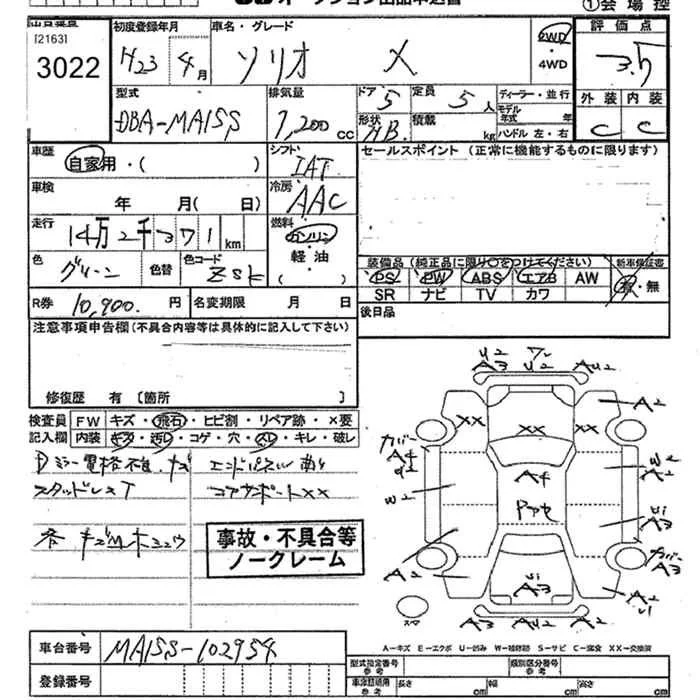 ①会場控
出品番号
[2163]
3022
初度登録年月
H23年4月
車名・グレード
ソリオ X
2WD
・
4WD
評価点
3.5
型式
DBA-MA15S
排気量
1,200cc
ドア 5
定員 5人
形状 HB
積載 kg
ディーラー・並行
モデル年式 年
ハンドル 左・右
外装 内装
C C
車歴
自家用・( )
シフト
IAT
セールスポイント (正常に機能するものに限ります)
車検
年 月( 日)
冷房
AAC
走行
14万2千371km
燃料
ガソリン
軽油
・( )
色
グリーン
色替
色コード
ZSK
装備品(純正品に限り○をつけてください)
新車保証書
PS PW ABS エアB AW
有・無
SR ナビ TV カワ
R券 10,900.円
名変期限 月 日
後日品
注意事項申告欄(不具合内容等は具体的に記入して下さい)
修復歴 有 [箇所 ]
検査員記入欄
FW キズ・飛石・ヒビ割・リペア跡・×要
内装 キズ・汚レ・コゲ・穴・スレ・キレ・破レ
スタッドレスT
コアサポートXX
事故・不具合等
ノークレーム
A3 U2 A2 U2
XX XX XX
A2
カバー
A4
W2
A4
Pアセ
W2
A3
カバー
A3
A2
A3
A2
スペア
A3 U2 AU2
A−キズ E−エクボ U−凹み W−補修跡 S−サビ C−腐食 XX−交換済
車台番号 MA15S-102954
登録番号
型式指定番号 参考
類別区分番号 参考
車検証積用 参考
長さ cm
幅 cm
高さ cm